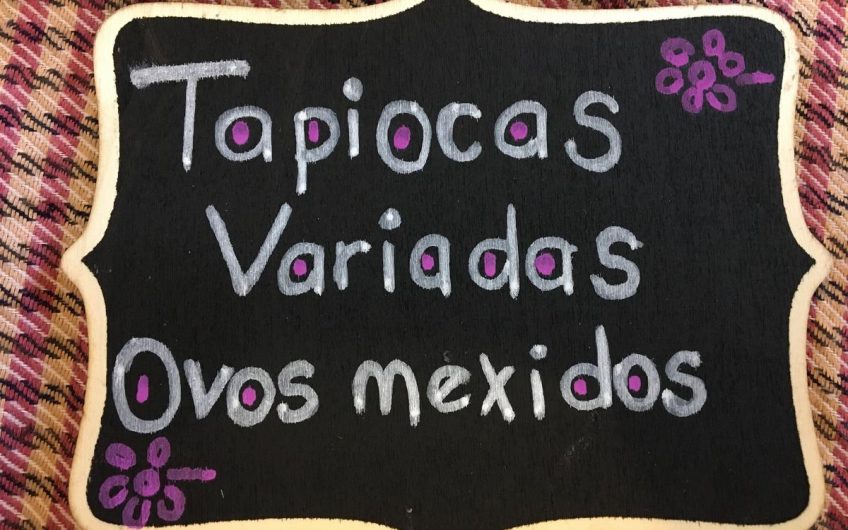 Tapiocas
Variadas
Ovos mexidos